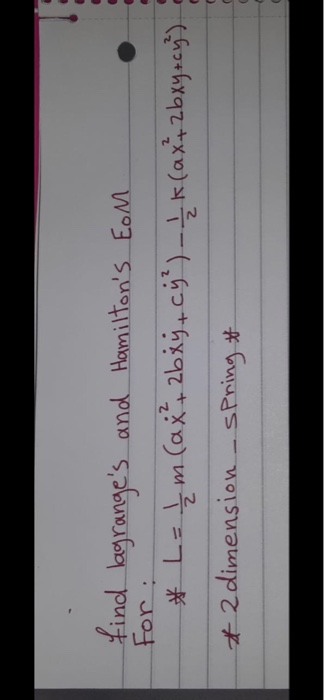 find lagrange's and Hamilton's EoM
For:
* L = 1/2 m (aẋ² + 2bẋẏ + cẏ²) - 1/2 k (ax² + 2bxy + cy²)
* 2 dimension - spring *